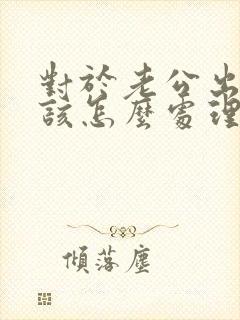 對於老公出
該怎麼處理
傾落塵